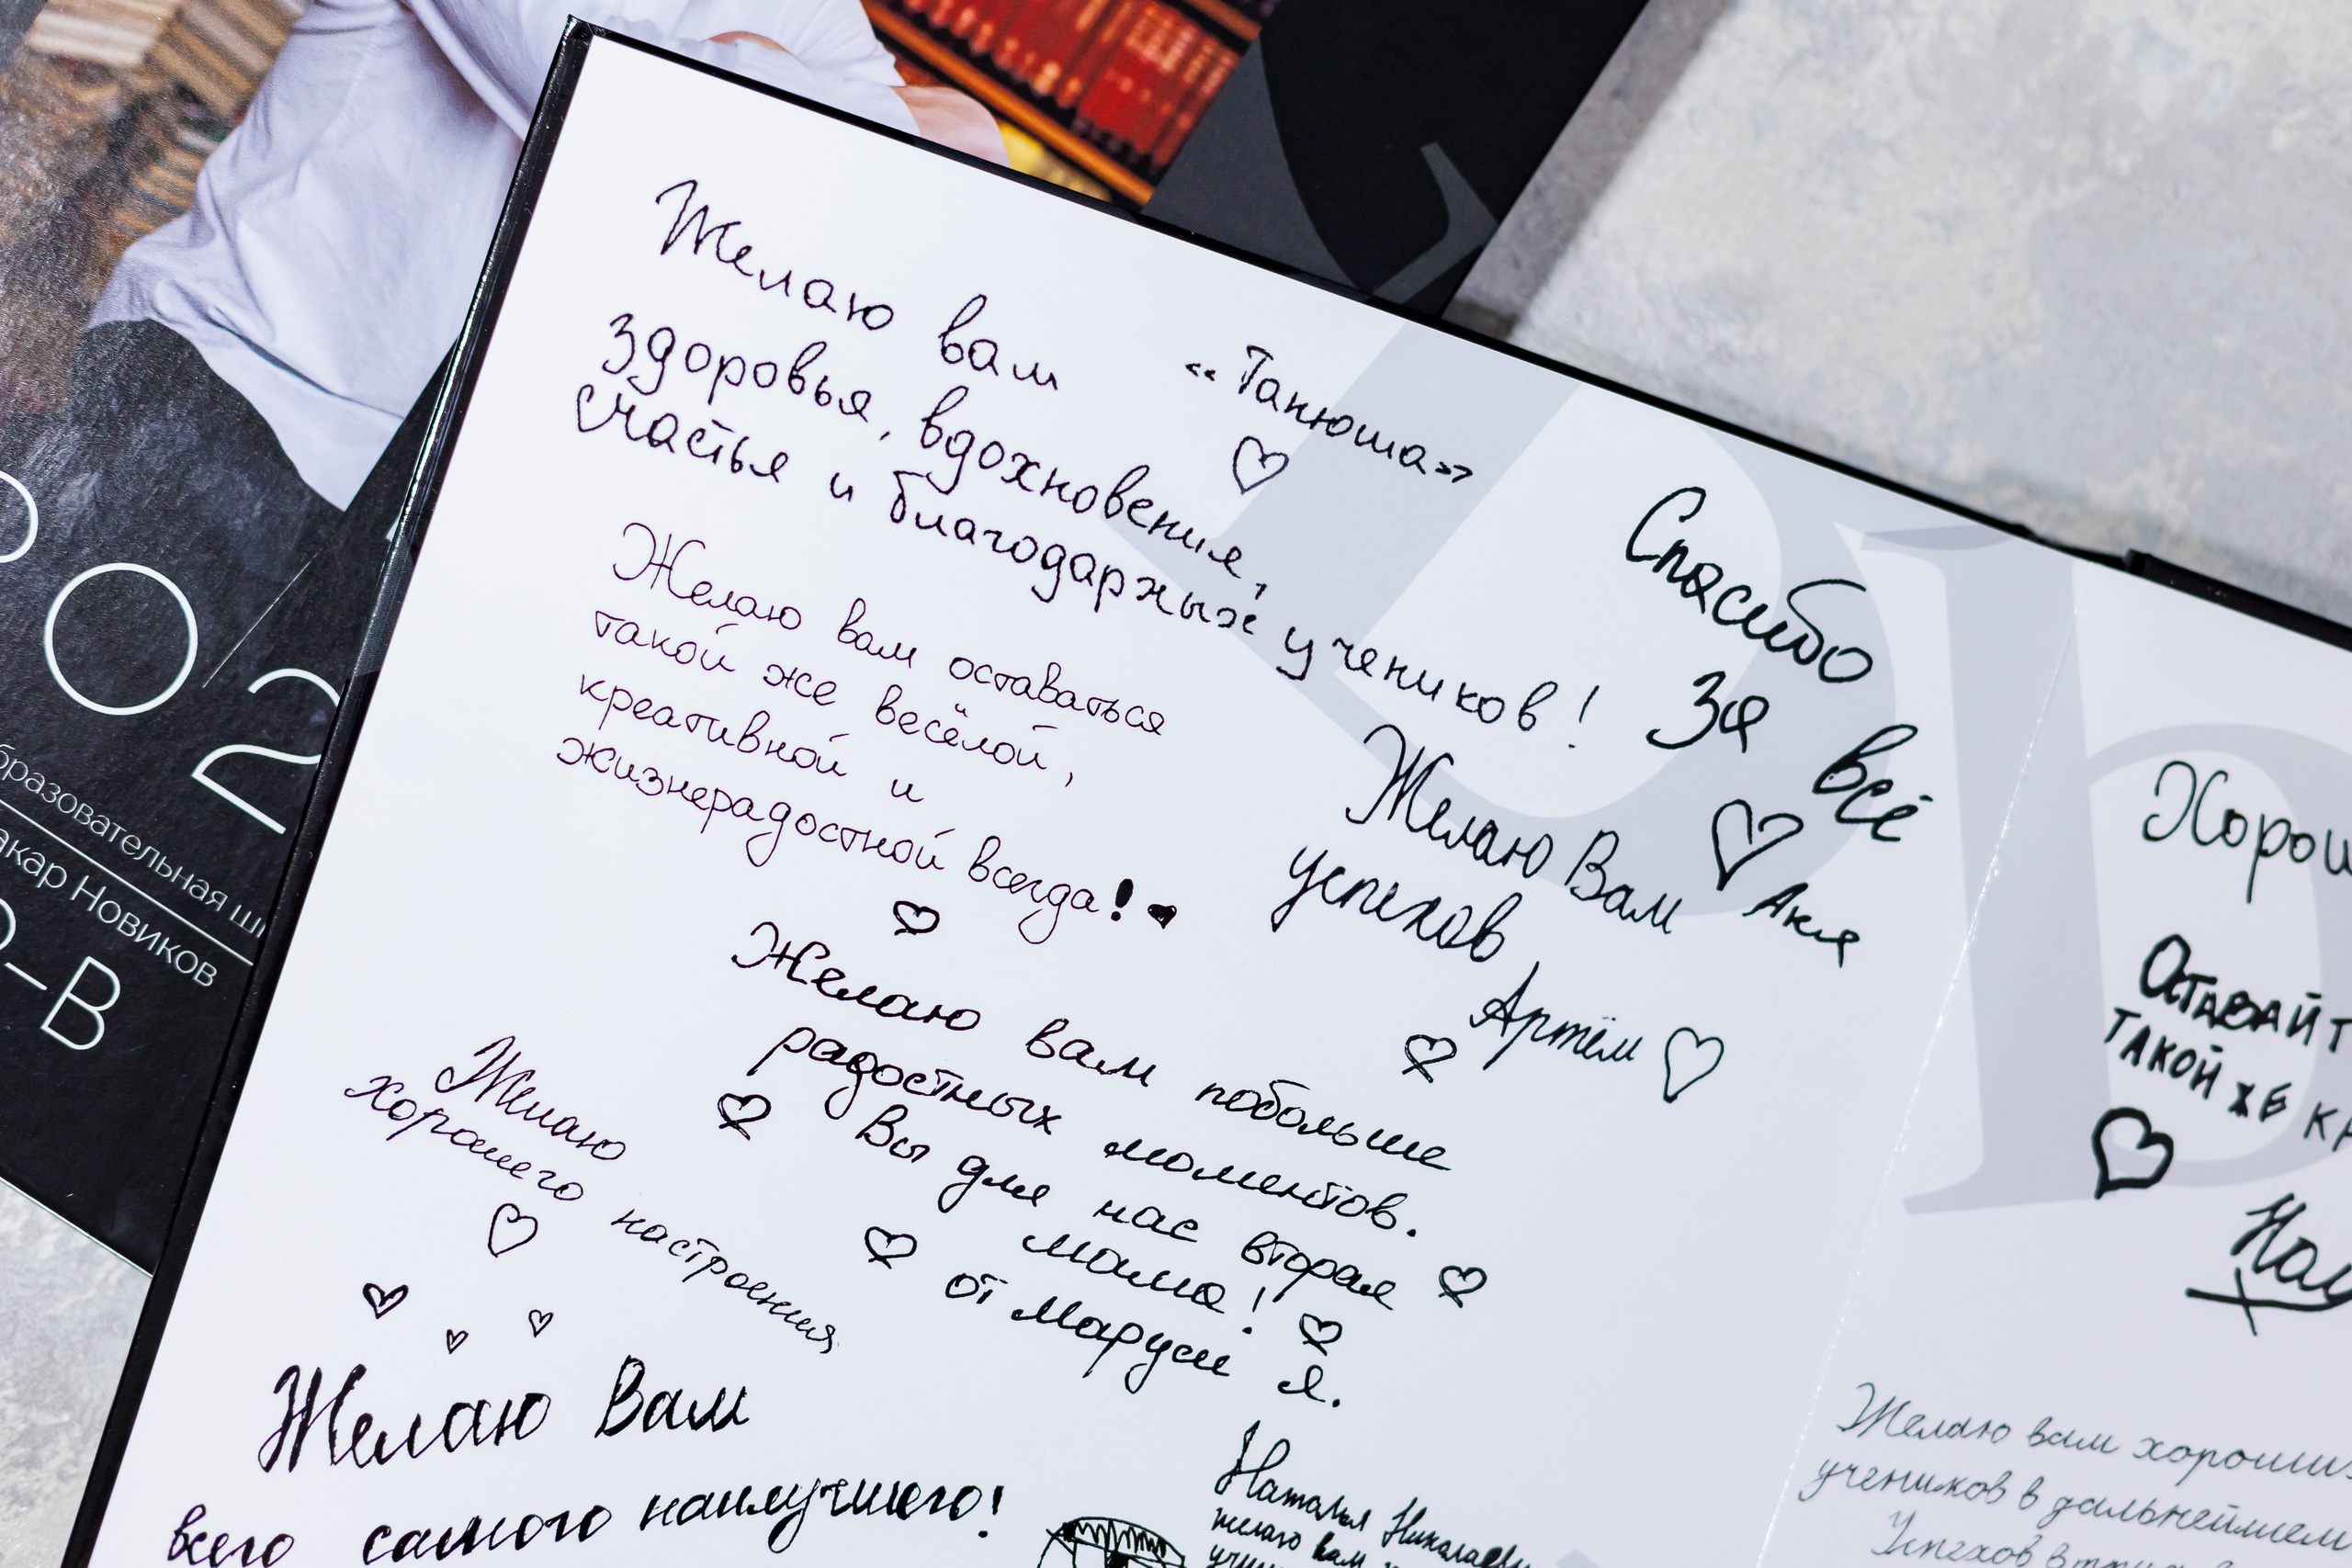 Желаю вам
здоровья, вдохновения,
счастья и благодарных учеников!
«Танюша»
Спасибо
за всё
Аня
Желаю вам оставаться
такой же весёлой,
креативной и
жизнерадостной всегда!
Желаю Вам
успехов
Артём
Желаю вам побольше
радостных моментов.
Вы для нас вторая
мама!
от Маруси Я.
Желаю
хорошего настроения
Желаю Вам
всего самого наилучшего!
Наталья Николаевн
желаю вам
Хорош
Оставайт
такой же кр
Желаю вам хороших
учеников в дальнейшем
Успехов в
О2
бразовательная ш
акар Новиков
–В